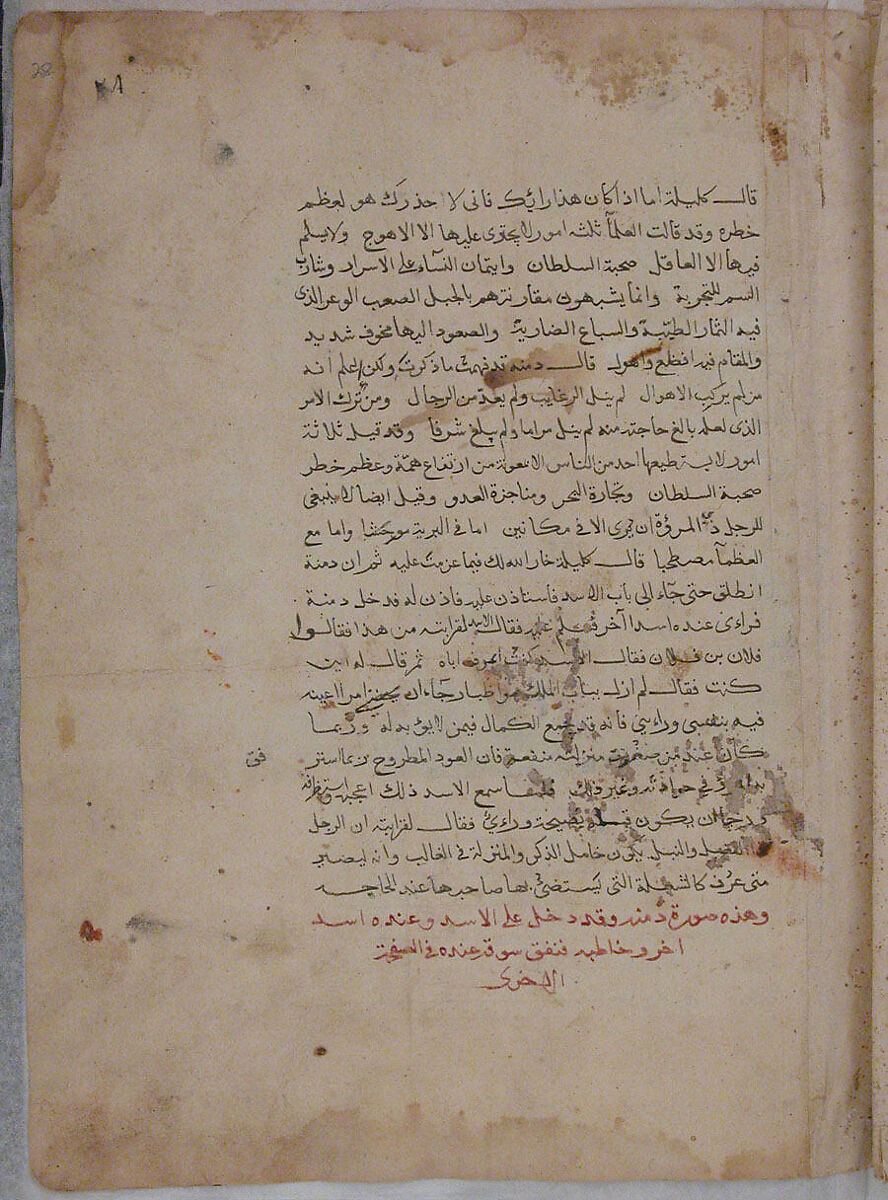 28
٢٨
قال كليلة اما اذا كان هذا رايك فانى لا احذرك هو لعظم
خطره وقد قالت العلمآ ثلثه امور لا يجترى عليها الا الاهوج ولا يسلم
فيها الا العاقل صحبة السلطان وايتمان النسآء على الاسرار وشارب
السم للتجربة وانما يشبهون مقارنتهم بالجبل الصعب الوعر الذى
فيه الثمار الطيبة والسباع الضارية والصعود اليها مخوف شديد
والمقام فيه افظع واهول قال دمنه قد فهمت ما ذكرت ولكن اعلم انه
من لم يركب الاهوال لم ينل الرغايب ولم يعد من الرجال ومن ترك الامر
الذى لعله بالغ حاجته منه لم ينل مراما ولم يبلغ شرفا وقد قيل ثلاثة
امور لا يستطيعها احد من الناس الا بمعونة من ارتفاع همة وعظم خطر
صحبة السلطان وتجارة البحر ومناجزة العدو وقيل ايضا لا ينبغى
للرجل ذى المروة ان يرى الا فى مكانين اما فى البرية متوحشا واما مع
العظمآ مصطحبا قال كليلة خار الله لك فيما عزمت عليه ثم ان دمنة
انطلق حتى جآء الى باب الاسد فاستاذن عليه فاذن له فدخل دمنة
فراى عنده اسدا آخر فسلم عليه فقال الاسد لقرابته من هذا فقالوا
فلان بن فلان فقال الاسد كنت اعرف اباه ثم قال له اين
كنت فقال لم ازل بباب الملك مواظبا رجآء ان يحضر امرا اعينه
فيه بنفسى وراىى فانه قد يجمع الكمال فيمن لا يؤبه له وربما
كان عند من صغرت منزلته منفعة فان العود المطروح ربما استر
فق
به المرؤ فى حوائجه وغير ذلك فلما سمع الاسد ذلك اعجبه واستظرفه
ورجا ان يكون قبله نصيحة وراى فقال لقرابته ان الرجل
الفضل والنبل يكون خامل الذكر والمنزلة فى الغالب وانه ليصير
متى عرف كالشعلة التى يستضى بها صاحبها عند الحاجه
وهذه صورة دمنه وقد دخل على الاسد وعنده اسد
اخر وخاطبه فنفق سوقه عنده فى الصفحة
الاخرى